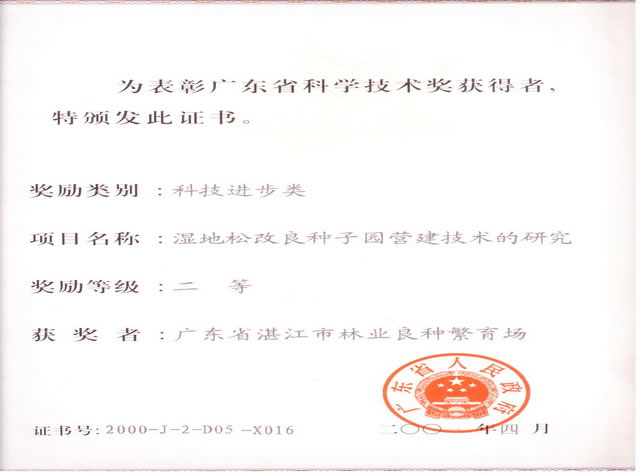 为表彰广东省科学技术奖获得者,
特颁发此证书。
奖励类别：科技进步类
项目名称：湿地松改良种子园营建技术的研究
奖励等级：二 等
获 奖 者：广东省湛江市林业良种繁育场
广东省人民政府
证书号: 2000-J-2-D05 -X016
二〇〇 年四月